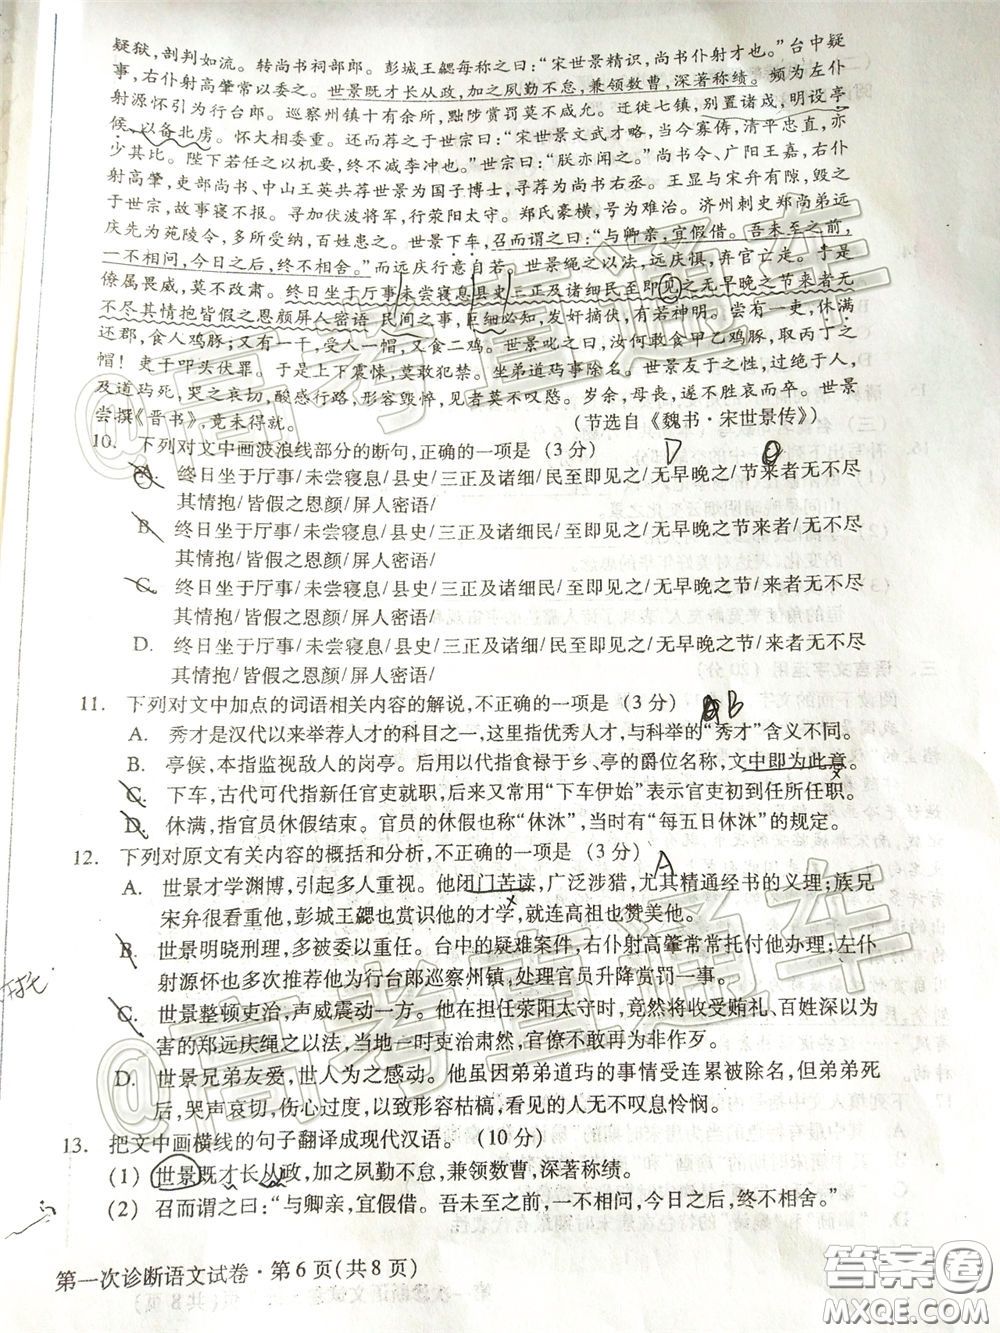 疑狱，剖判如流。转尚书祠部郎。彭城王勰每称之曰：“宋世景精识，尚书仆射才也。”台中疑
事，右仆射高肇常以委之。世景既才长从政，加之夙勤不怠，兼领数曹，深著称绩。频为左仆
射源怀引为行台郎。巡察州镇十有余所，黜陟赏罚莫不咸允。迁徙七镇，别置诸戍，明设亭
候，以备北虏。怀大相委重。还而荐之于世宗曰：“宋世景文武才略，当今寡俦，清平忠直，亦
少其比。陛下若任之以机要，终不减李冲也。”世宗曰：“朕亦闻之。”尚书令、广阳王嘉，右仆
射高肇，吏部尚书、中山王英共荐世景为国子博士，寻荐为尚书右丞。王显与宋弁有隙，毁之
于世宗，故事寝不报。寻加伏波将军，行荥阳太守。郑氏豪横，号为难治。济州刺史郑尚弟远
庆先为苑陵令，多所受纳，百姓患之。世景下车，召而谓之曰：“与卿亲，宜假借。吾未至之前，
一不相问，今日之后，终不相舍。”而远庆行意自若。世景绳之以法，远庆惧，弃官亡走。于是
僚属畏威，莫不改肃。终日坐于厅事未尝寝息县史三正及诸细民至即见之无早晚之节来者无
不尽其情抱皆假之恩颜屏人密语 民间之事，巨细必知，发奸摘伏，有若神明。尝有一吏，休满
还郡，食人鸡豚；又有一干，受人一帽，又食二鸡。世景叱之曰：汝何敢食甲乙鸡豚，取丙丁之
帽！吏干叩头伏罪。于是上下震悚，莫敢犯禁。坐弟道玙事除名。世景友于之性，过绝于人，
及道玙死，哭之哀切，酸感行路，形容毁悴，见者莫不叹愍。岁余，母丧，遂不胜哀而卒。世景
尝撰《晋书》，竟未得就。 （节选自《魏书·宋世景传》）
10. 下列对文中画波浪线部分的断句，正确的一项是（3 分） D
A. 终日坐于厅事/未尝寝息/县史/三正及诸细/民至即见之/无早晚之节/来者无不尽
其情抱/皆假之恩颜/屏人密语/
B. 终日坐于厅事/未尝寝息/县史/三正及诸细民/至即见之/无早晚之节来者/无不尽
其情抱/皆假之恩颜/屏人密语/
C. 终日坐于厅事/未尝寝息/县史/三正及诸细/民至即见之/无早晚之节/来者无不尽
其情抱/皆假之恩颜/屏人密语/
D. 终日坐于厅事/未尝寝息/县史/三正及诸细民/至即见之/无早晚之节/来者无不尽
其情抱/皆假之恩颜/屏人密语/
11. 下列对文中加点的词语相关内容的解说，不正确的一项是（3 分） B
A. 秀才是汉代以来举荐人才的科目之一，这里指优秀人才，与科举的“秀才”含义不同。
B. 亭候，本指监视敌人的岗亭。后用以代指食禄于乡、亭的爵位名称，文中即为此意。
C. 下车，古代可代指新任官吏就职，后来又常用“下车伊始”表示官吏初到任所任职。
D. 休满，指官员休假结束。官员的休假也称“休沐”，当时有“每五日休沐”的规定。
12. 下列对原文有关内容的概括和分析，不正确的一项是（3 分） A
A. 世景才学渊博，引起多人重视。他闭门苦读，广泛涉猎，尤其精通经书的义理；族兄
宋弁很看重他，彭城王勰也赏识他的才学，就连高祖也赞美他。
B. 世景明晓刑理，多被委以重任。台中的疑难案件，右仆射高肇常常托付他办理；左仆
射源怀也多次推荐他为行台郎巡察州镇，处理官员升降赏罚一事。
C. 世景整顿吏治，声威震动一方。他在担任荥阳太守时，竟然将收受贿礼、百姓深以为
害的郑远庆绳之以法，当地一时吏治肃然，官僚不敢再为非作歹。
D. 世景兄弟友爱，世人为之感动。他虽因弟弟道玙的事情受连累被除名，但弟弟死
后，哭声哀切，伤心过度，以致形容枯槁，看见的人无不叹息怜悯。
13. 把文中画横线的句子翻译成现代汉语。（10 分）
(1) 世景既才长从政，加之夙勤不怠，兼领数曹，深著称绩。
(2) 召而谓之曰：“与卿亲，宜假借。吾未至之前，一不相问，今日之后，终不相舍。”
第一次诊断语文试卷·第 6 页（共 8 页）
@高考直通车
@高考直通车
答案圈
MXQE.COM